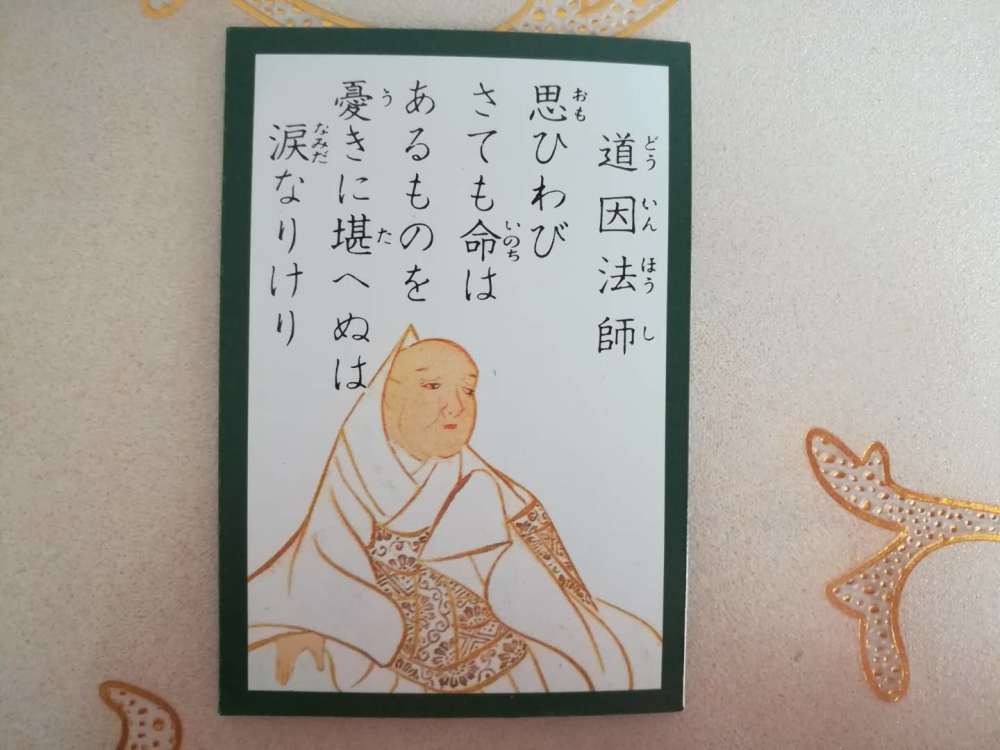 道因法師
思ひわび
さても命は
あるものを
憂きに堪へぬは
涙なりけり